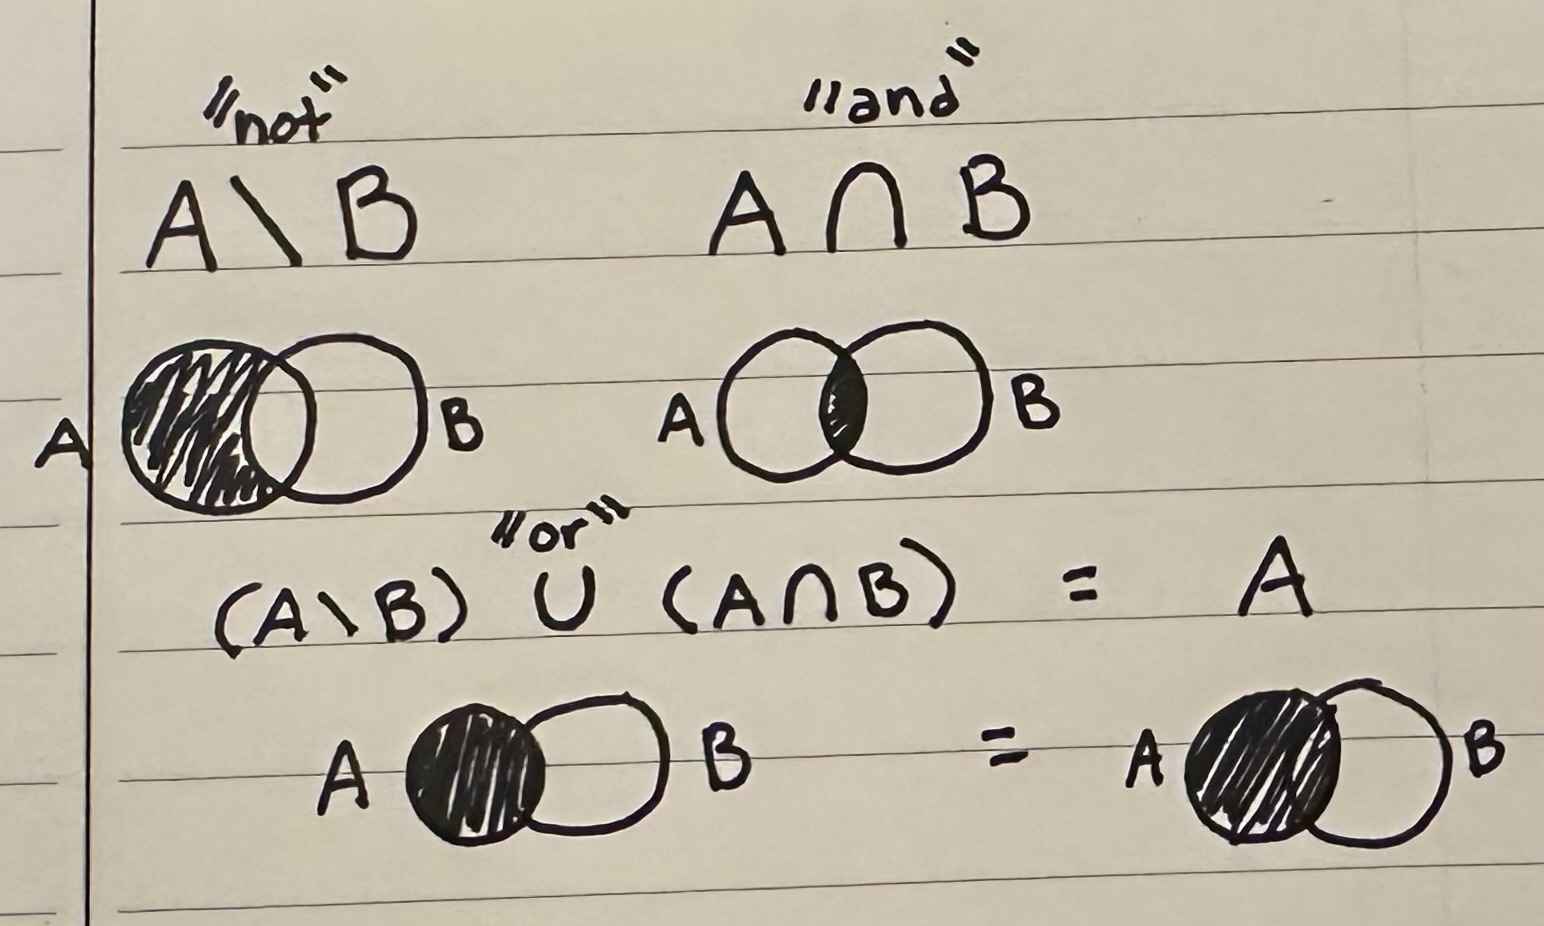 "not" "and"
A \ B A ∩ B
A B A B
"or"
(A \ B) ∪ (A ∩ B) = A
A B = A B